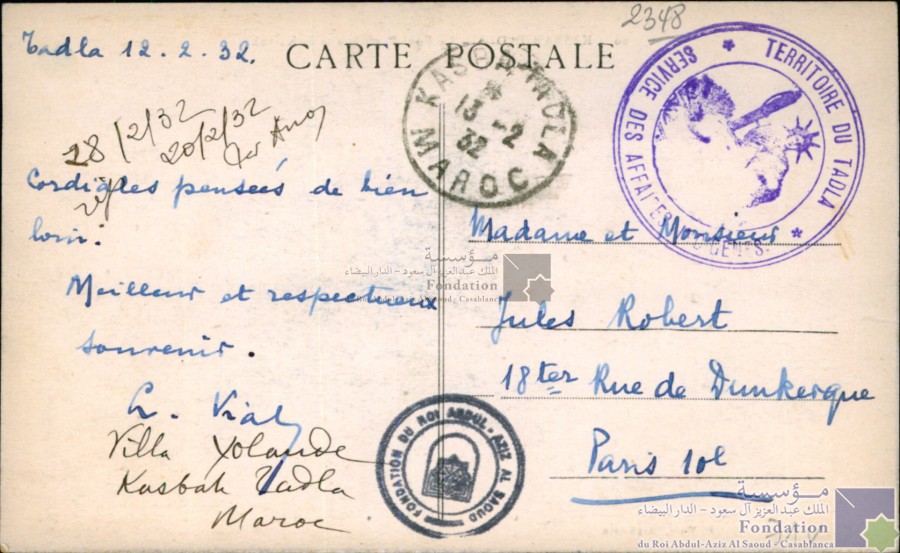 2348
Tadla 12.2.32. CARTE POSTALE
KASBA-TADLA
13 -2
32
MAROC
TERRITOIRE DU TADLA
SERVICE DES AFFAI
28/2/32
20/2/32
Cordiales pensées de bien
loin.
Meilleur et respectueux
souvenir.
Villa Yolande
Kasbah Tadla
Maroc
Madame et Monsieur
Jules Robert
18ter Rue de Dunkerque
Paris 10e
مؤسسة
الملك عبد العزيز آل سعود - الدار البيضاء
Fondation
du Roi Abdul-Aziz Al Saoud - Casablanca
FONDATION DU ROI ABDUL-AZIZ AL SAOUD
مؤسسة
الملك عبد العزيز آل سعود - الدار البيضاء
Fondation
du Roi Abdul-Aziz Al Saoud - Casablanca